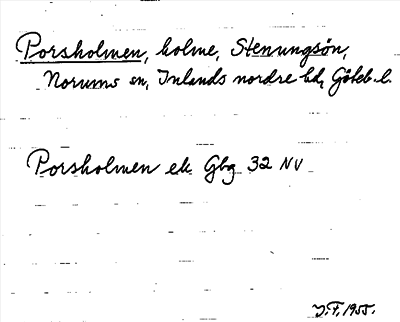 Porsholmen, holme, Stenungsön,
Norums sn, Inlands nordre hd, Göteb. l.
Porsholmen ek Gbg 32 NV
J.F. 1955.